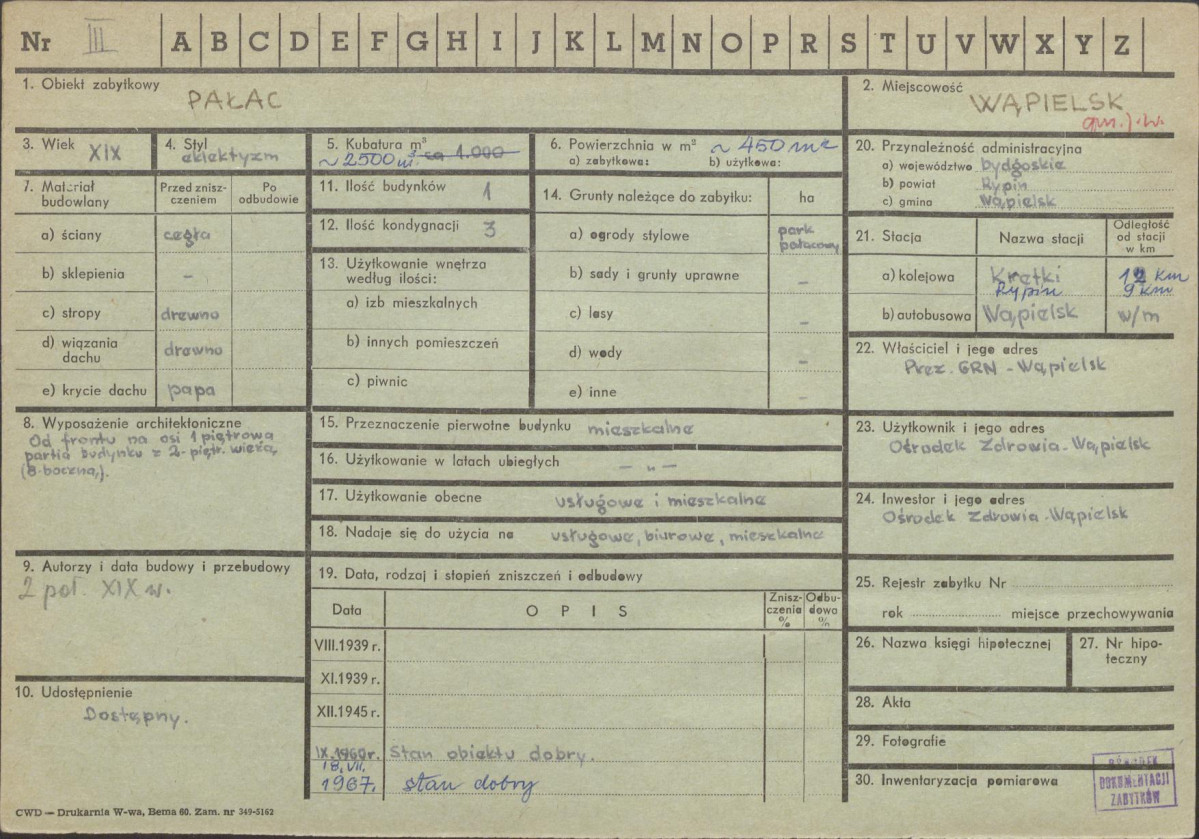 Nr III A B C D E F G H I J K L M N O P R S T U V W X Y Z
1. Obiekt zabytkowy
PAŁAC
2. Miejscowość
WĄPIELSK
3. Wiek XIX
4. Styl
eklektyzm
5. Kubatura m³
~2500 m³ ca 1.000
6. Powierzchnia w m² ~ 450 m²
a) zabytkowa: b) użytkowa:
20. Przynależność administracyjna
a) województwo bydgoskie
b) powiat Rypin
c) gmina Wąpielsk
7. Materiał budowlany
Przed znisz-
czeniem
Po
odbudowie
a) ściany cegła
b) sklepienia –
c) stropy drewno
d) wiązania
dachu drewno
e) krycie dachu papa
11. Ilość budynków 1
12. Ilość kondygnacji 3
13. Użytkowanie wnętrza
według ilości:
a) izb mieszkalnych
b) innych pomieszczeń
c) piwnic
14. Grunty należące do zabytku: ha
a) ogrody stylowe park
pałacowy
b) sady i grunty uprawne –
c) lasy –
d) wody –
e) inne –
21. Stacja Nazwa stacji
Odległość
od stacji
w km
a) kolejowa Krętki 12 km
Rypin 9 km
b) autobusowa Wąpielsk w/m
22. Właściciel i jego adres
Prez. GRN - Wąpielsk
8. Wyposażenie architektoniczne
Od frontu na osi 1 piętrowa
partia budynku z 2-piętr. wieżą,
(8-boczną).
15. Przeznaczenie pierwotne budynku mieszkalne
16. Użytkowanie w latach ubiegłych – „ –
17. Użytkowanie obecne usługowe i mieszkalne
18. Nadaje się do użycia na usługowe, biurowe, mieszkalne
23. Użytkownik i jego adres
Ośrodek Zdrowia - Wąpielsk
24. Inwestor i jego adres
Ośrodek Zdrowia - Wąpielsk
9. Autorzy i data budowy i przebudowy
2 poł. XIX w.
10. Udostępnienie
Dostępny.
19. Data, rodzaj i stopień zniszczeń i odbudowy
Data OPIS
Znisz-
czenia
%
Odbu-
dowa
%
VIII.1939 r.
XI.1939 r.
XII.1945 r.
IX.1960 r. Stan obiektu dobry.
18.VII.
1967. stan dobry
25. Rejestr zabytku Nr
rok miejsce przechowywania
26. Nazwa księgi hipotecznej
27. Nr hipo-
teczny
28. Akta
29. Fotografie
30. Inwentaryzacja pomiarowa
OŚRODEK
DOKUMENTACJI
ZABYTKÓW
CWD — Drukarnia W-wa, Bema 60. Zam. nr 349-5162